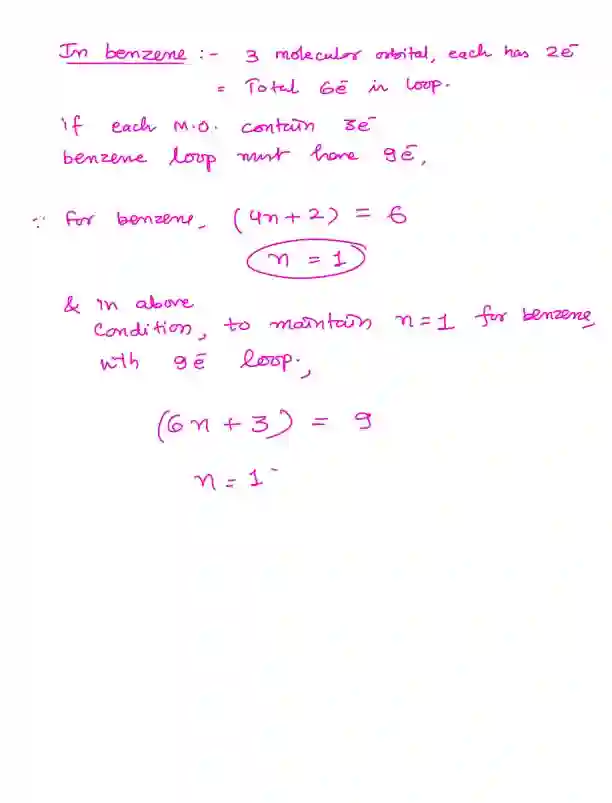 In benzene :- 3 molecular orbital, each has 2ē
= Total 6ē in loop.
if each M.O. contain 3ē
benzene loop must have 9ē,
∵ for benzene, (4n+2) = 6
n = 1
& in above
condition, to maintain n=1 for benzene,
with 9ē loop.,
(6n + 3) = 9
n = 1